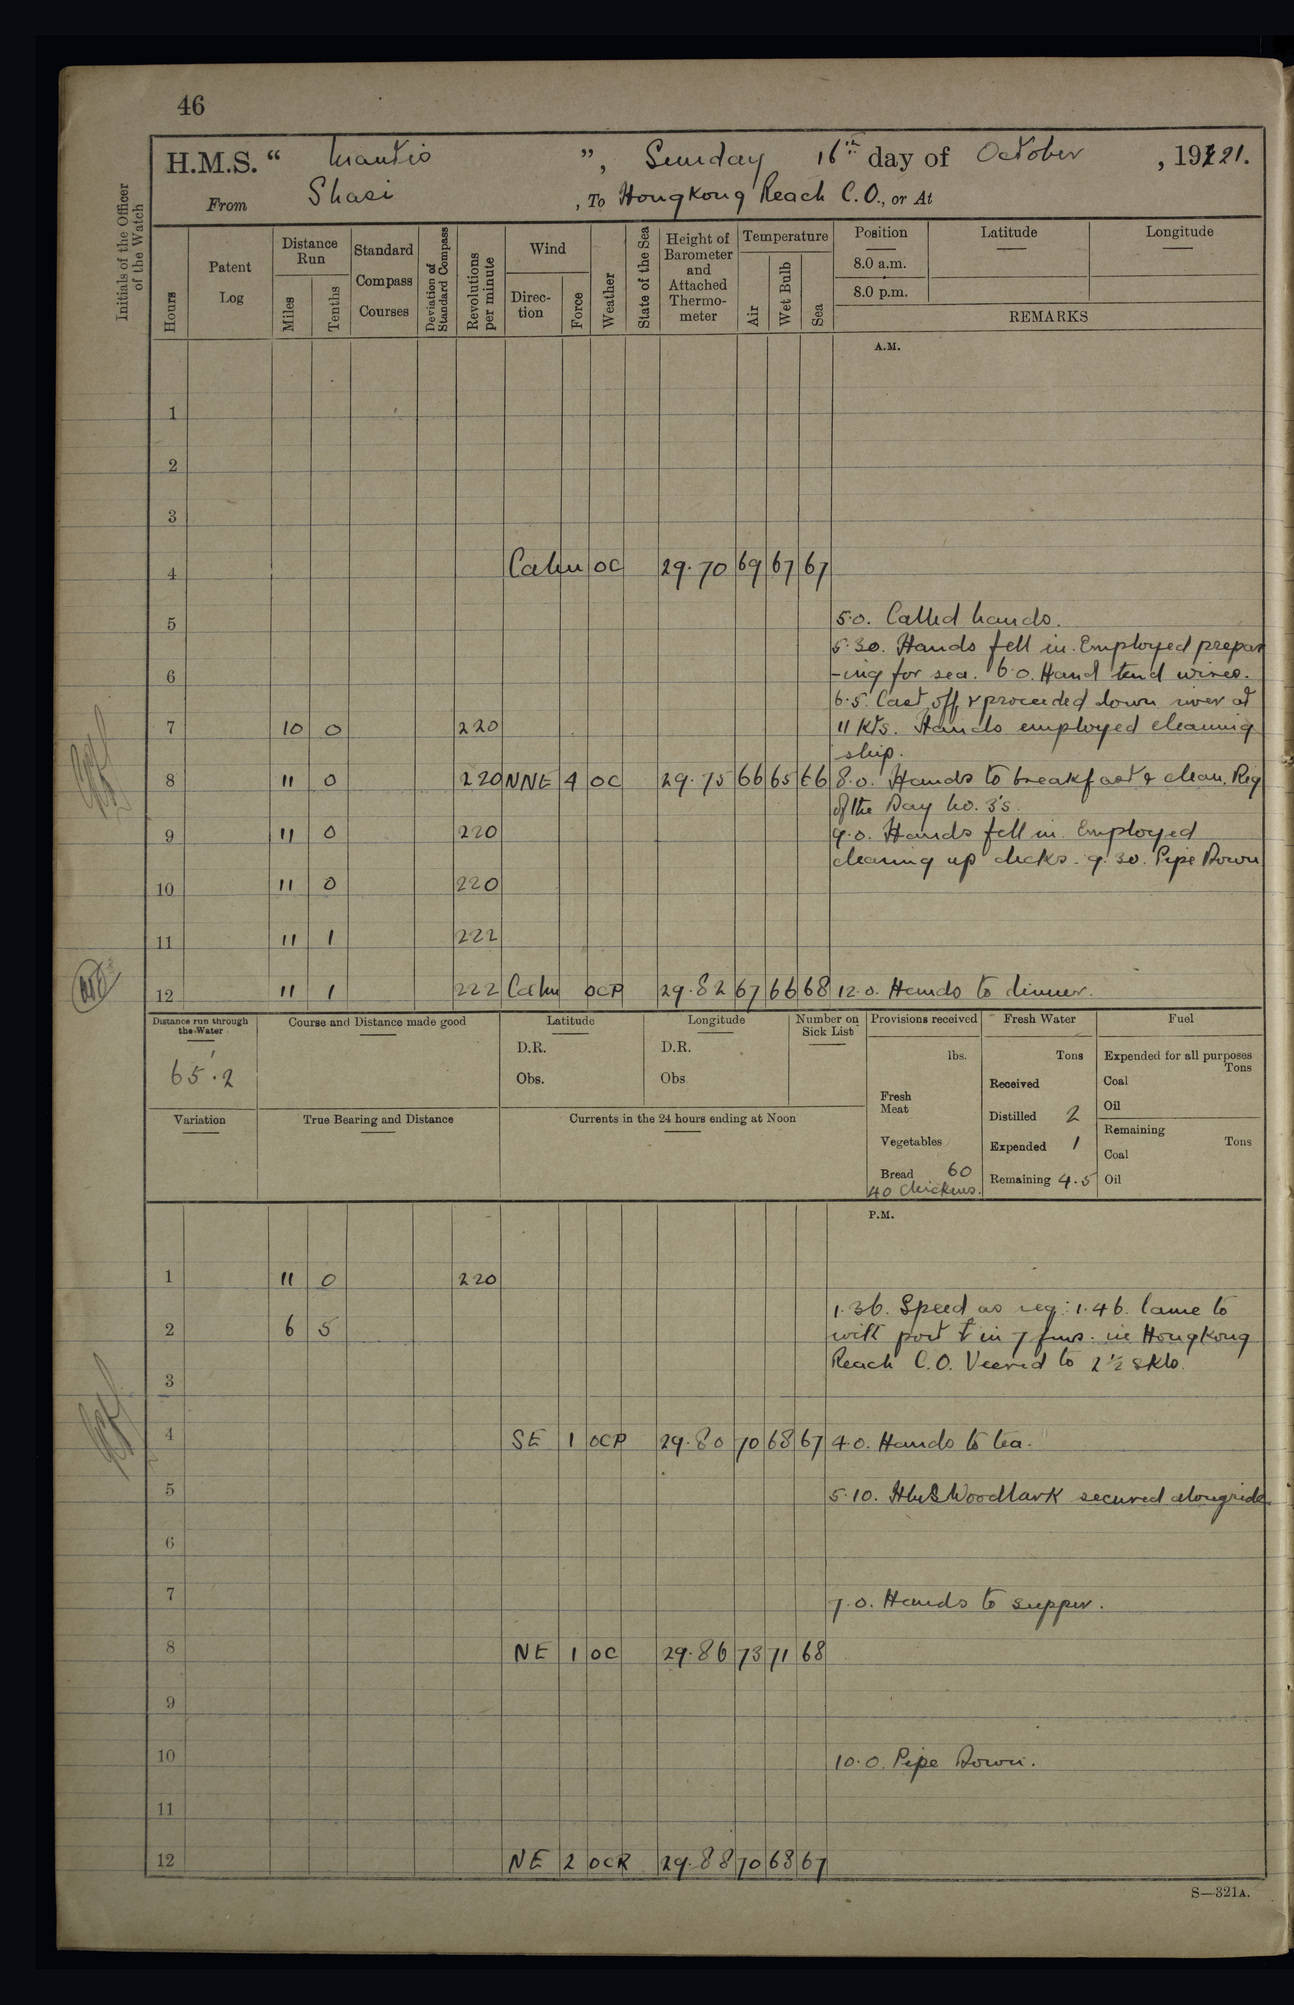 46
H.M.S. “ Mantis ”, Sunday 16th day of October , 1921.
From Shasi , To Hongkong Reach C.O., or At
Initials of the Officer of the Watch
Hours
Patent Log
Distance Run
Miles
Tenths
Standard Compass Courses
Deviation of Standard Compass
Revolutions per minute
Wind
Direction
Force
Weather
State of the Sea
Height of Barometer and Attached Thermometer
Temperature
Air
Wet Bulb
Sea
Position
8.0 a.m.
8.0 p.m.
Latitude
Longitude
REMARKS
A.M.
1
2
3
4 Calm OC 29.70 69 67 67
5 5.0. Called hands.
5.30. Hands fell in. Employed prepar
6 -ing for sea. 6.0. Hand tend wires.
6.5. Cast off & proceeded down river at
7 10 0 220 11 Kts. Hands employed cleaning
ship.
8 11 0 220 NNE 4 OC 29.75 66 65 66 8.0. Hands to breakfast & clean. Rig
of the Day No. 3's.
9 11 0 220 9.0. Hands fell in. Employed
cleaning up decks. 9.30. Pipe Down
10 11 0 220
11 11 1 222
12 11 1 222 Calm OCP 29.82 67 66 68 12.0. Hands to dinner.
Distance run through the Water
65.2
Course and Distance made good
Latitude
D.R.
Obs.
Longitude
D.R.
Obs
Number on Sick List
Provisions received
lbs.
Fresh Meat
Vegetables
Bread 60
40 chickens.
Fresh Water
Tons
Received
Distilled 2
Expended 1
Remaining 4.5
Fuel
Expended for all purposes
Tons
Coal
Oil
Remaining
Tons
Coal
Oil
Variation
True Bearing and Distance
Currents in the 24 hours ending at Noon
P.M.
1 11 0 220
1.36. Speed as req: 1.46. Came to
2 6 5 with port ⚓ in 7 fms. in Hongkong
Reach C.O. Veered to 2½ skls.
3
4 SE 1 OCP 29.80 70 68 67 4.0. Hands to tea.
5 5.10. HMS Woodlark secured alongside
6
7 7.0. Hands to supper.
8 NE 1 OC 29.86 73 71 68
9
10 10.0. Pipe Down.
11
12 NE 2 OCR 29.88 70 68 67
S—321A.